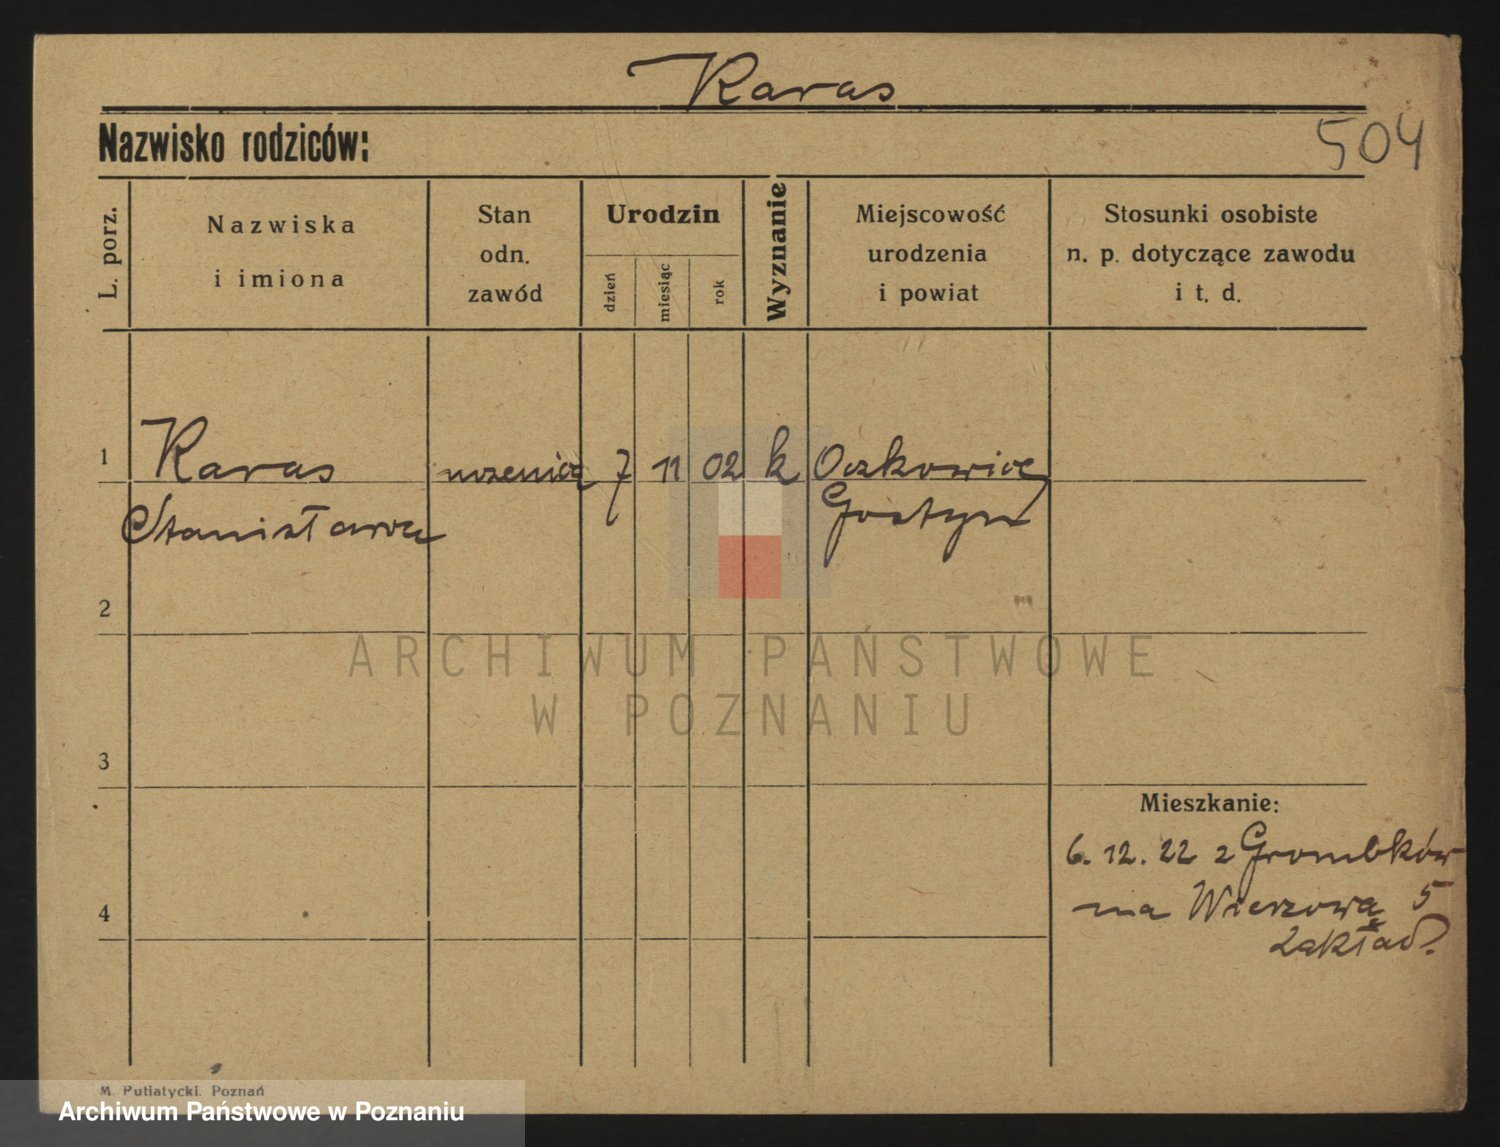 Karas
504
Nazwisko rodziców:
L. porz.
Nazwiska
i imiona
Stan
odn.
zawód
Urodzin
dzień
miesiąc
rok
Wyznanie
Miejscowość
urodzenia
i powiat
Stosunki osobiste
n. p. dotyczące zawodu
i t. d.
1 Karas uczenica 7 11 02 k Oczkowice
Stanisława Gostyń
2
ARCHIWUM PAŃSTWOWE
W POZNANIU
3
Mieszkanie:
6. 12. 22 z Grombków
na Wierzową 5
Zakład
4
M. Putiatycki. Poznań
Archiwum Państwowe w Poznaniu